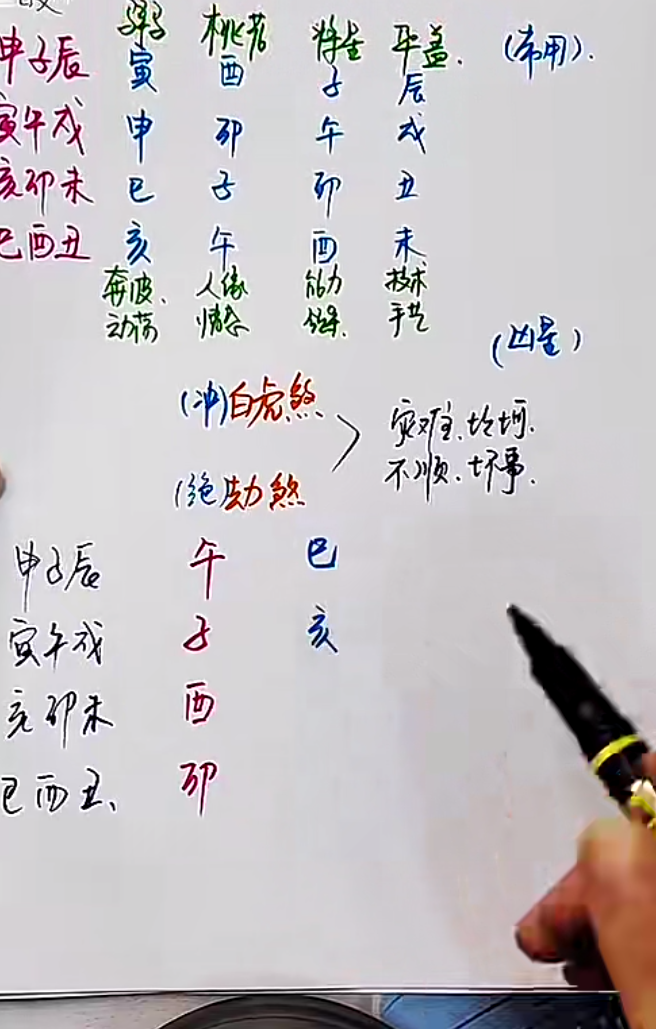 驿马 桃花 将星 华盖. (常用).
申子辰 寅 酉 子 辰
寅午戌 申 卯 午 戌
亥卯未 巳 子 卯 丑
巳酉丑 亥 午 酉 未
奔波、 人缘 能力 技术
动荡 情态 领导. 手艺
(凶星)
(冲)白虎煞
灾难、坎坷.
不顺、坏事.
(绝)劫煞
申子辰 午 巳
寅午戌 子 亥
亥卯未 酉
巳酉丑、 卯